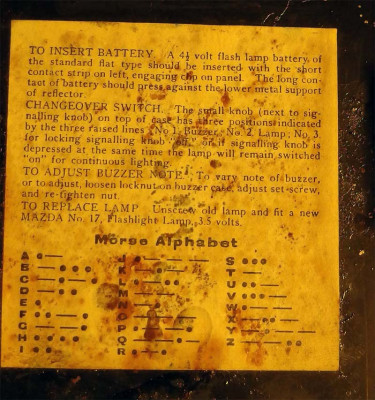 TO INSERT BATTERY. A 4½ volt flash lamp battery, of
the standard flat type should be inserted with the short
contact strip on left, engaging clip on panel. The long con-
tact of battery should press against the lower metal support
of reflector.
CHANGEOVER SWITCH. The small knob (next to sig-
nalling knob) on top of case has three positions indicated
by the three raised lines, No. 1, Buzzer, No. 2, Lamp, No. 3,
for locking signalling knob "off," or if signalling knob is
depressed at the same time the lamp will remain switched
"on" for continuous lighting.
TO ADJUST BUZZER NOTE. To vary note of buzzer,
or to adjust, loosen locknut on buzzer case, adjust set-screw,
and re-tighten nut.
TO REPLACE LAMP. Unscrew old lamp and fit a new
MAZDA No. 17, Flashlight Lamp, 3.5 volts.
Morse Alphabet
A J S
B K T
C L U
D M V
E N W
F O X
G P Y
H Q Z
I R